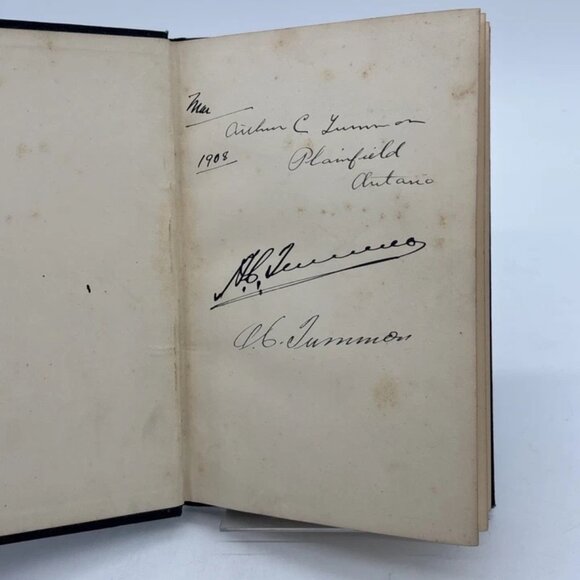 Mar
Arthur C Tummon
1908
Plainfield
Ontario
A.C. Tummon
A.C. Tummon